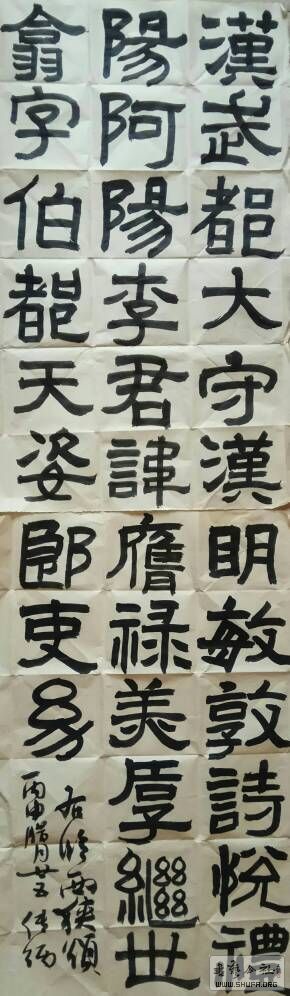 漢武都大守漢
陽阿陽李君諱
翕字伯都天姿
明敏敦詩悅禮
膺禄美厚繼世
郎吏幼
右臨西狹頌
丙申臘月廿五
WWW.SHUFA.ORG